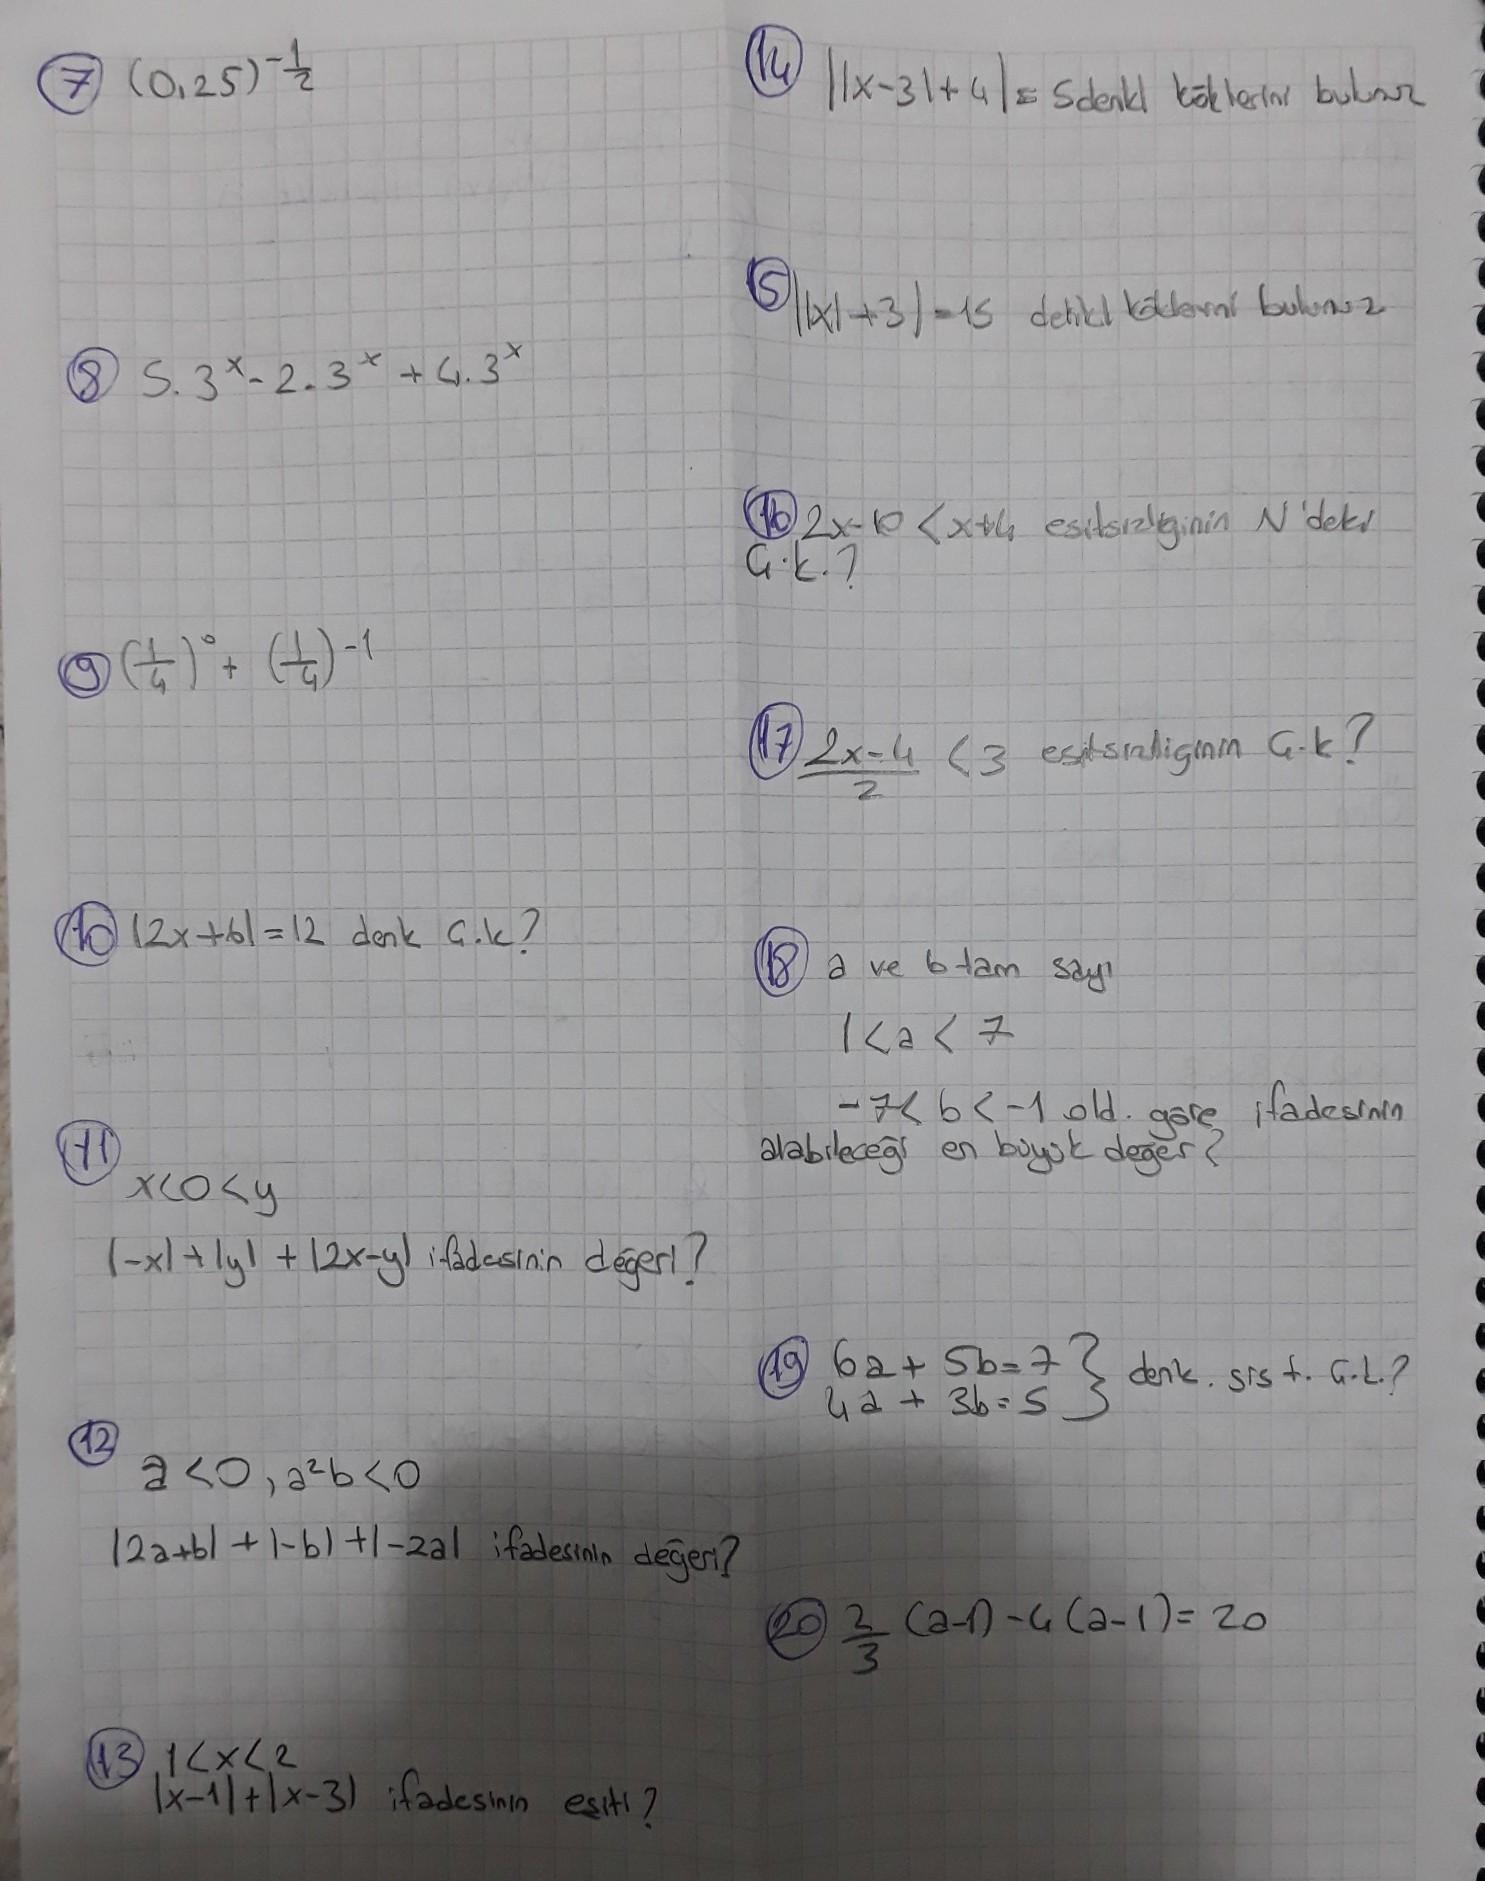 7 (0,25)^-1/2
8 5.3^x - 2.3^x + 4.3^x
9 (1/4)^0 + (1/4)^-1
10 |2x+6|=12 denk Ç.k?
11
x<0<y
|-x|+|y|+|2x-y| ifadesinin değeri?
12
a<0, a²b<0
|2a+b|+|-b|+|-2a| ifadesinin değeri?
13 1<x<2
|x-1|+|x-3| ifadesinin eşiti?
14 ||x-3|+4|=5 denkl köklerini bulunuz
15 ||x|+3|=15 denkl köklerini bulunuz
16 2x-10<x+4 eşitsizliğinin N'deki
Ç.k.?
17 2x-4/2 <3 eşitsizliğinin Ç.k?
18 a ve b tam sayı
1<a<7
-7<b<-1 old. göre ifadesinin
alabileceği en büyük değer?
19 6a+5b=7
4a+3b=5 } denk. sist. Ç.k.?
20 2/3 (a-1)-4(a-1)=20